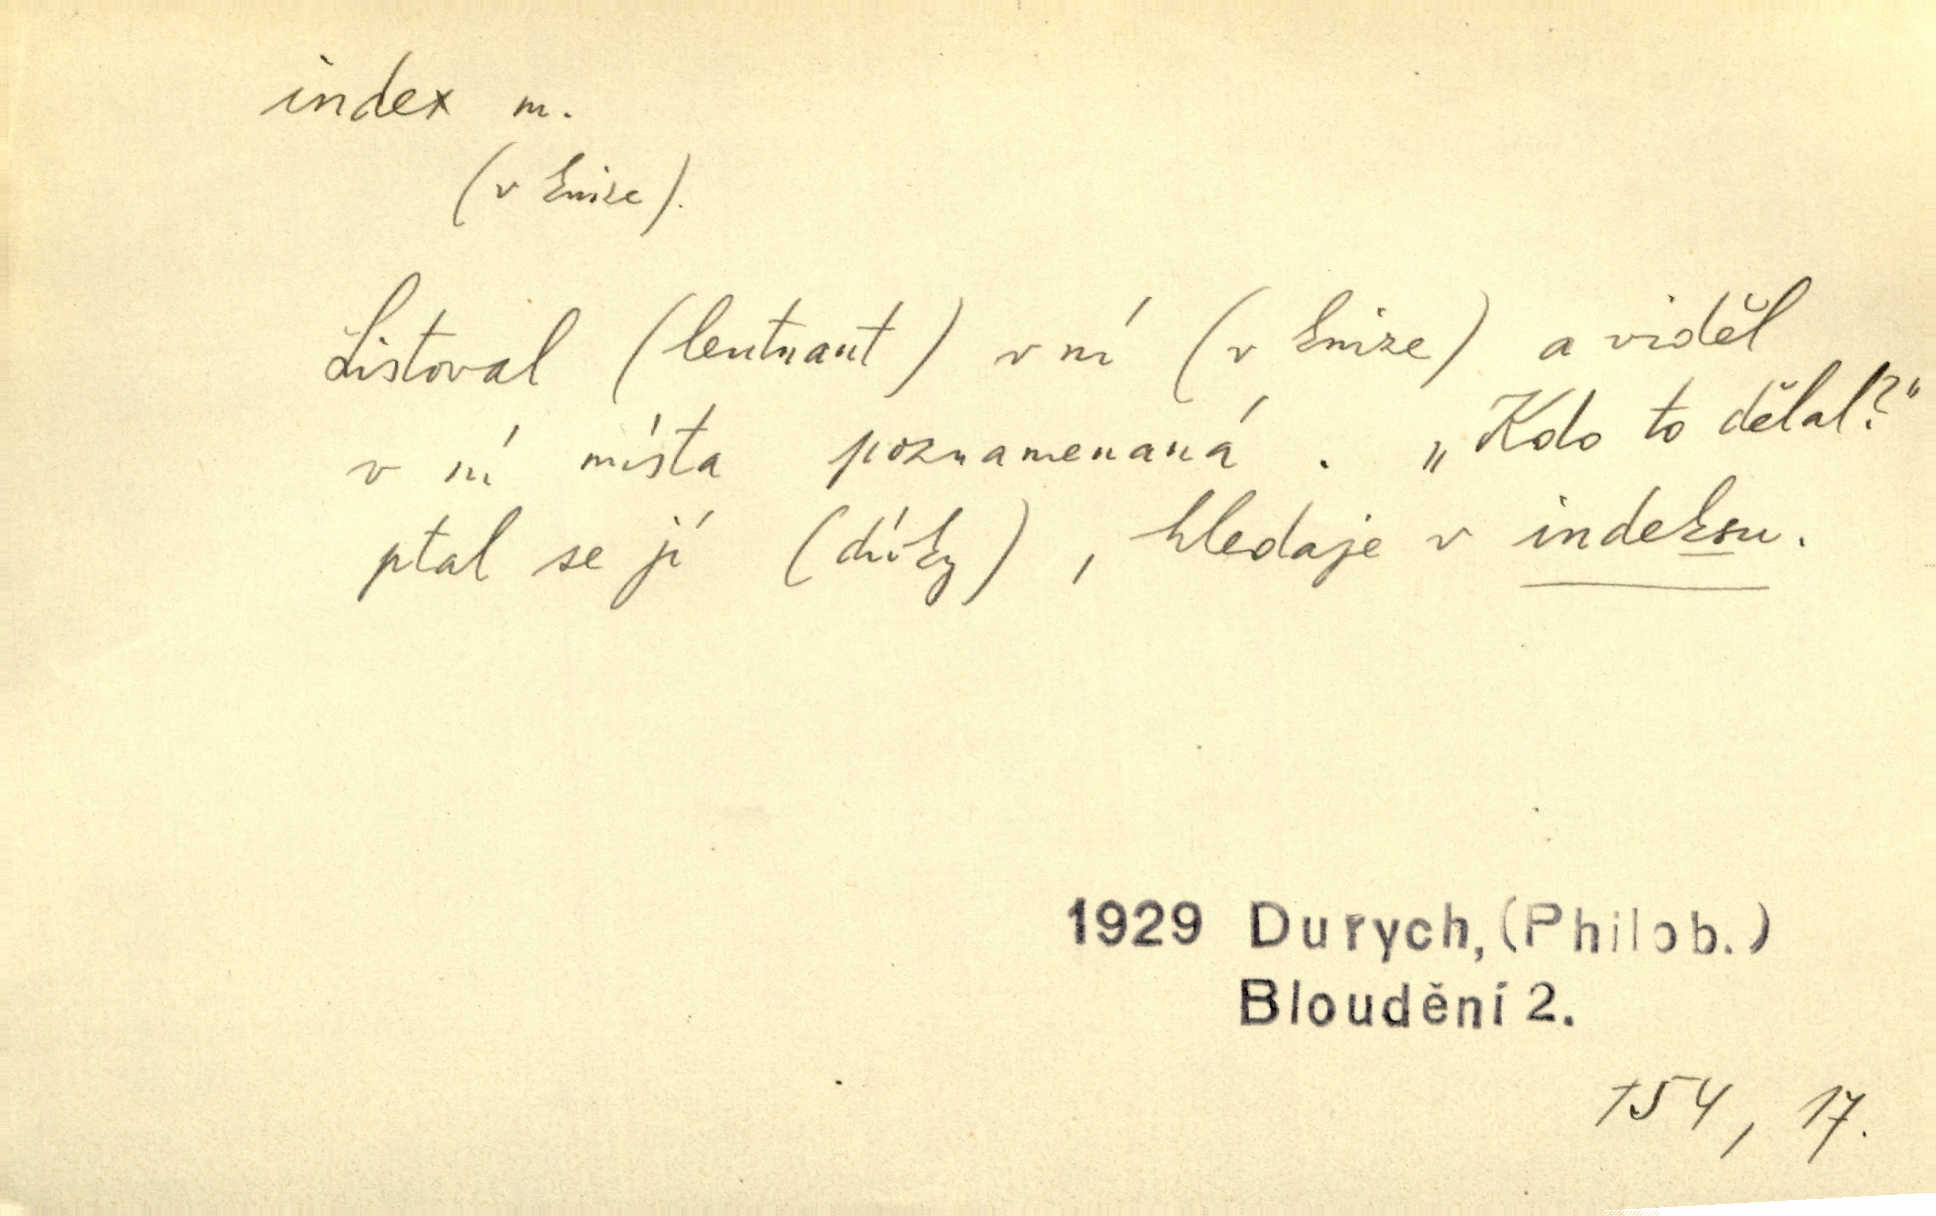 index m.
(v knize).
Listoval (leutnant) v ní (v knize) a viděl
v ní místa poznamenaná. „Kdo to dělal?“
ptal se jí (dívky), hledaje v indeksu.
1929 Durych, (Philob.)
Bloudění 2.
154, 17.